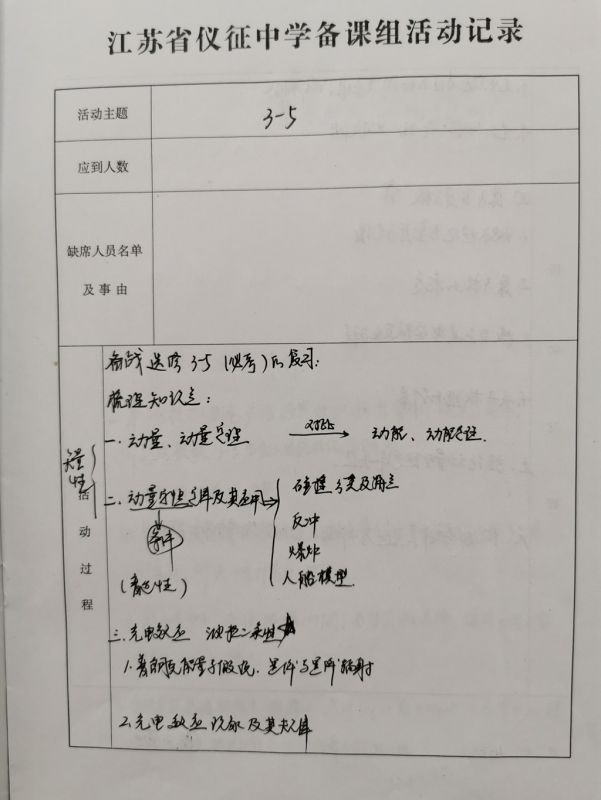 江苏省仪征中学备课组活动记录
活动主题
3-5
应到人数
缺席人员名单
及事由
活动过程
备战选修3-5(必考)的复习:
梳理知识点:
一.动量、动量定理 对比 动能、动能定理.
矢量性
二.动量守恒定律及其应用
条件
(普适性)
碰撞 与
反冲
爆炸
人船模型
三.光电效应 波粒二象性
1.普朗克能量子假说.黑体与黑体辐射
2.光电效应现象及其规律